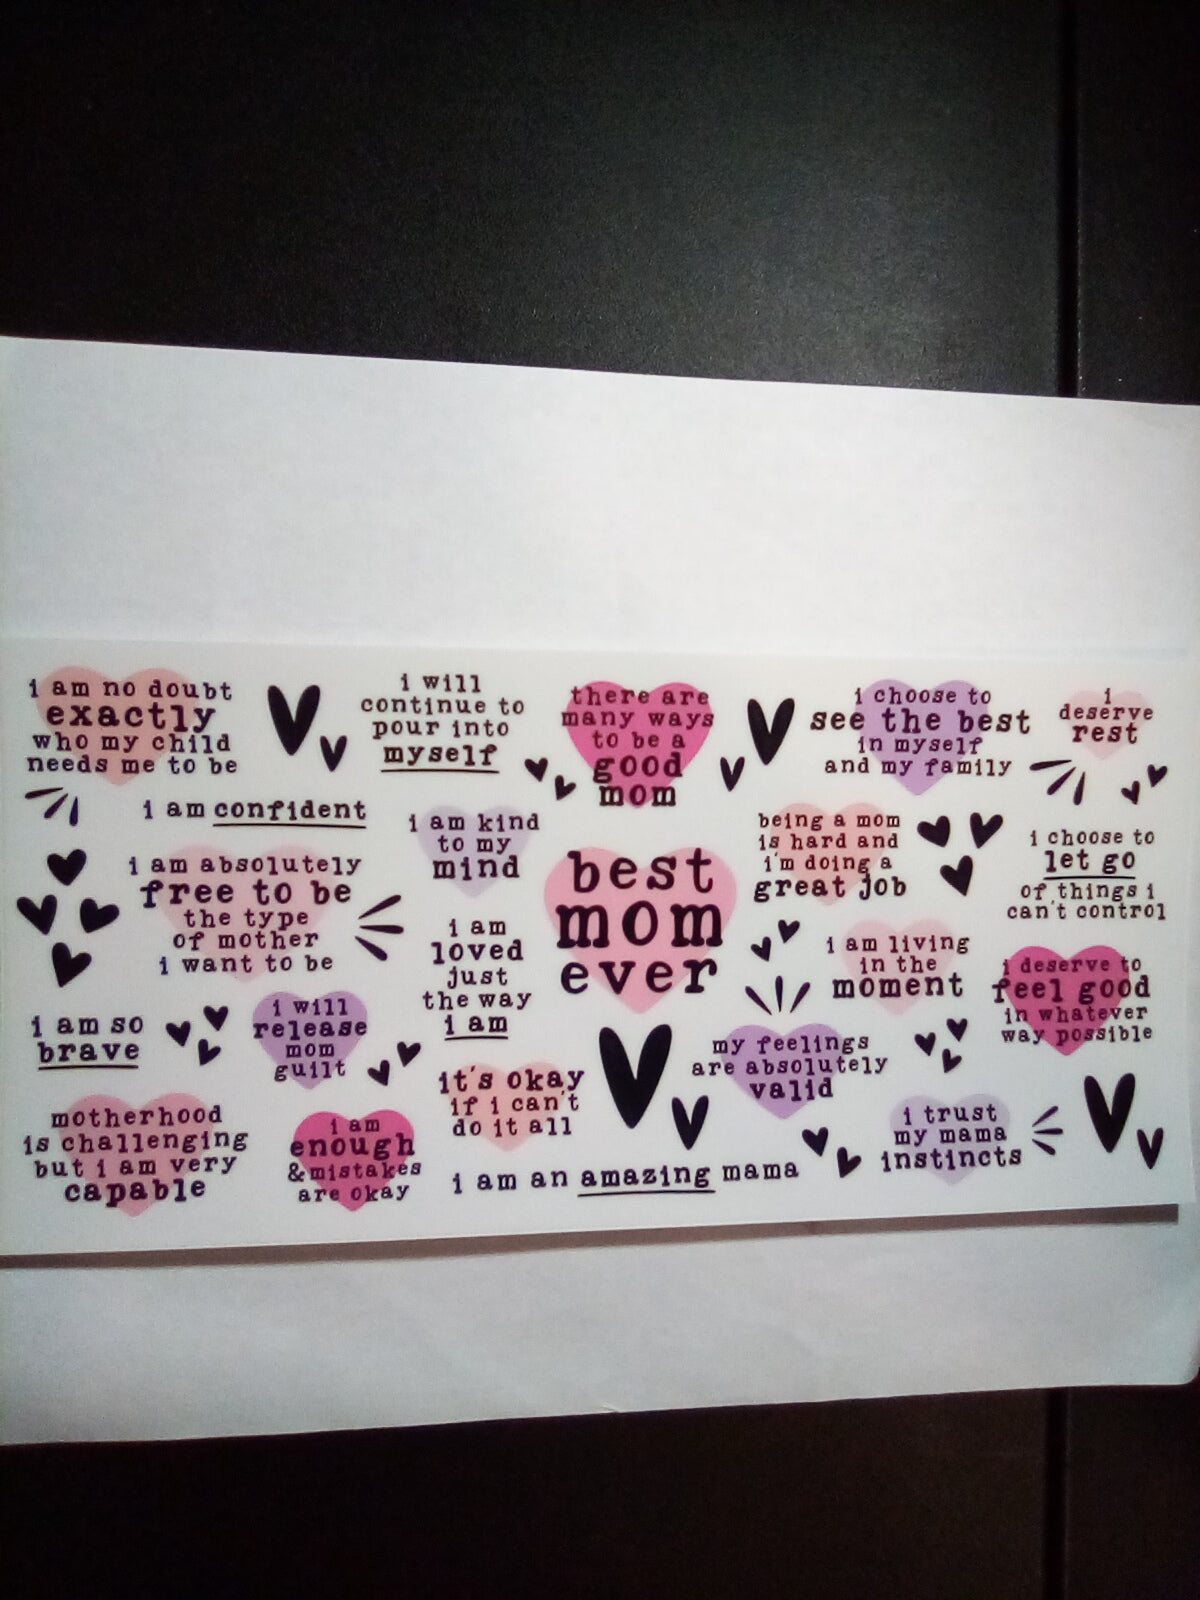 i am no doubt
exactly
who my child
needs me to be
i will
continue to
pour into
myself
there are
many ways
to be a
good
mom
i choose to
see the best
in myself
and my family
i
deserve
rest
i am confident
i am kind
to my
mind
being a mom
is hard and
i'm doing a
great job
i choose to
let go
of things i
can't control
i am absolutely
free to be
the type
of mother
i want to be
best
mom
ever
i am
loved
just
the way
i am
i am living
in the
moment
i deserve to
feel good
in whatever
way possible
i am so
brave
i will
release
mom
guilt
my feelings
are absolutely
valid
it's okay
if i can't
do it all
motherhood
is challenging
but i am very
capable
i am
enough
& mistakes
are okay
i am an amazing mama
i trust
my mama
instincts